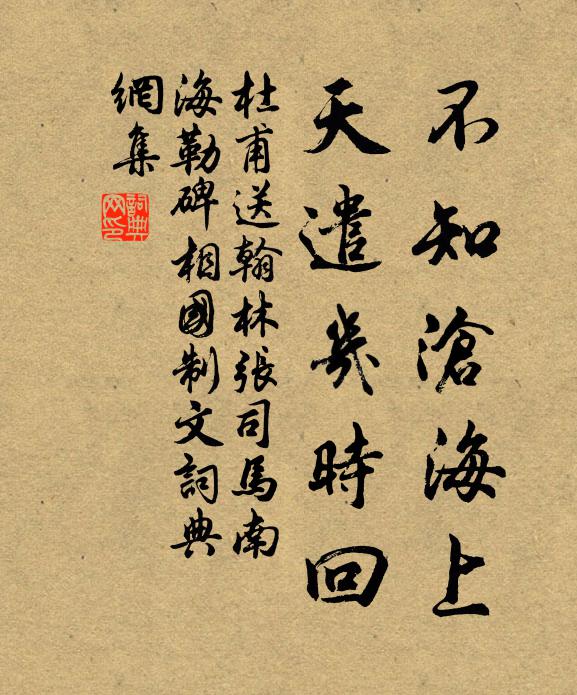 不知滄海上
天遣幾時回
杜甫送翰林張司馬南
海勒碑相國制文詞典
網集
詞典
网印